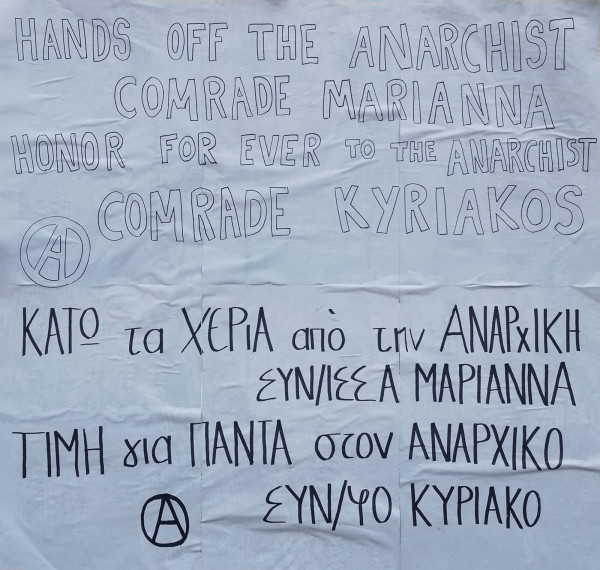 HANDS OFF THE ANARCHIST
COMRADE MARIANNA
HONOR FOR EVER TO THE ANARCHIST
COMRADE KYRIAKOS
ΚΑΤΩ τα ΧΕΡΙΑ από την ΑΝΑΡΧΙΚΗ
ΣΥΝ/ΙΣΣΑ ΜΑΡΙΑΝΝΑ
ΤΙΜΗ για ΠΑΝΤΑ στον ΑΝΑΡΧΙΚΟ
ΣΥΝ/ΦΟ ΚΥΡΙΑΚΟ